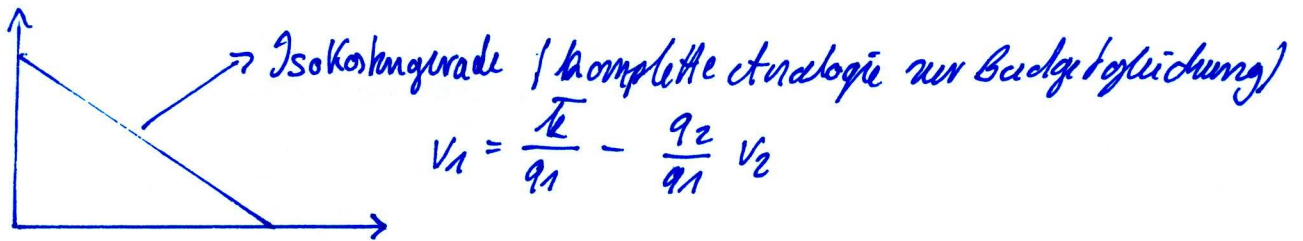 Isokostengerade (komplette Analogie zur Budgetgleichung)
v₁ = k̅/q₁ − q₂/q₁ v₂